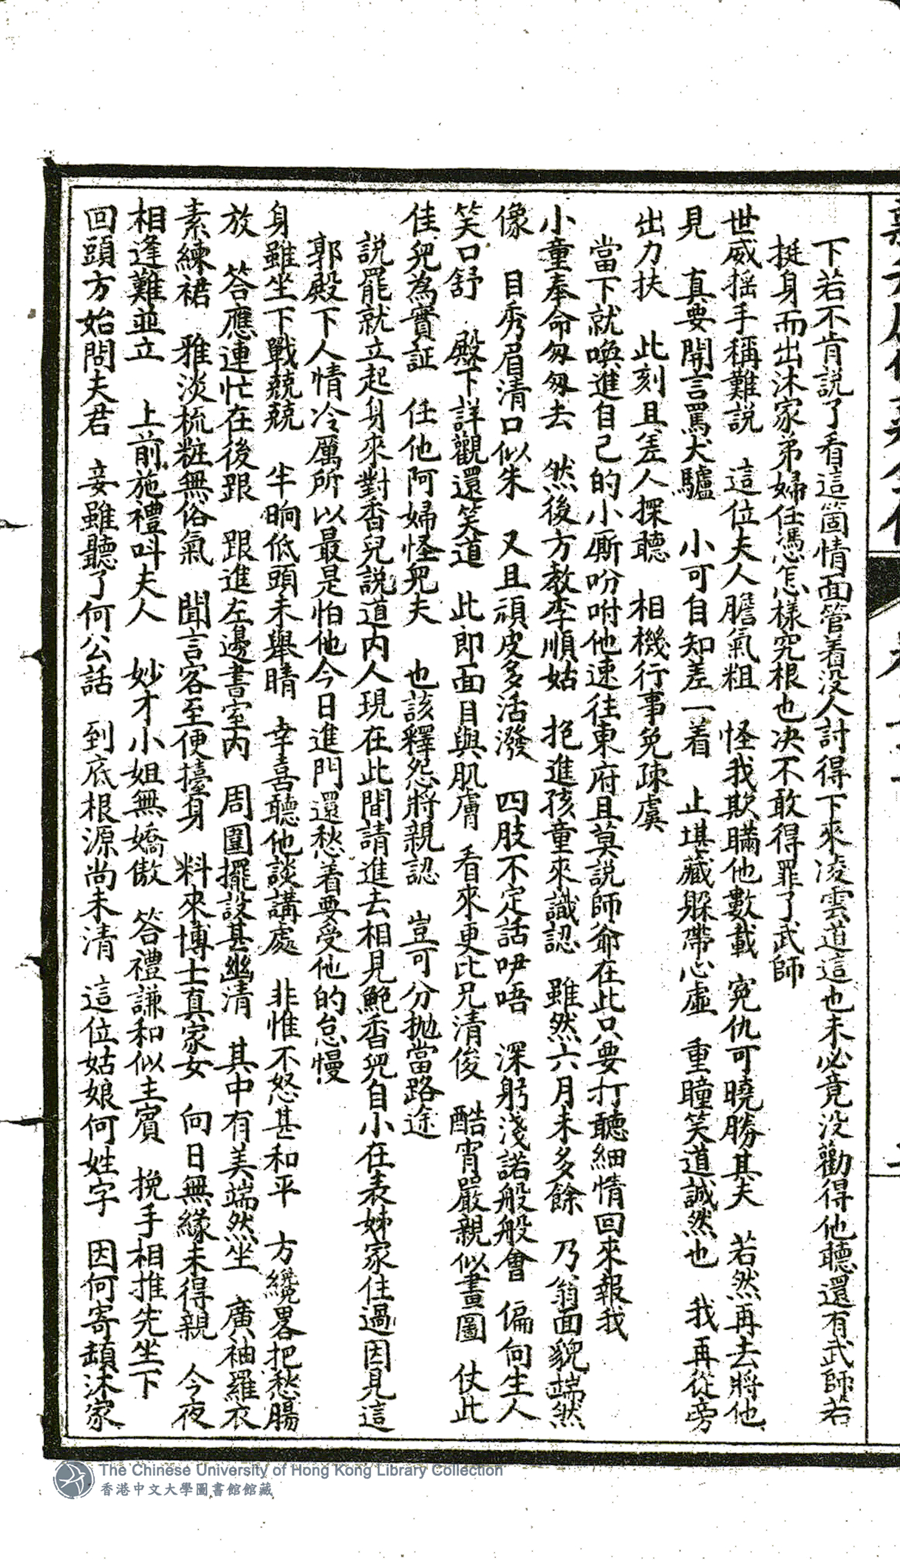 下若不肯説了看這箇情面管着没人討得下來凌雲道這也未必竟没勸得他聽還有武師若
挺身而出沐家弟婦任憑怎樣究根也决不敢得罪了武師
世威揺手稱難説　這位夫人膽氣粗　怪我欺瞞他數載　寃仇可曉勝其夫　若然再去將他
見　真要開言罵犬驢　小可自知差一着　止堪藏躱帶心虛　重瞳笑道誠然也　我再從旁
出力扶　此刻且差人探聽　相機行事免疎虞
當下就喚進自己的小厮吩咐他速往東府且莫説師爺在此只要打聽細情回來報我
小童奉命匆匆去　然後方教李順姑　抱進孩童來識認　雖然六月未多餘　乃翁面貌端然
像　目秀眉清口似朱　又且頑皮多活潑　四肢不定話咿唔　深躬淺諾般般會　偏向生人
笑口舒　殿下詳觀還笑道　此即面目與肌膚　看來更比兄清俊　酷肖嚴親似畫圖　仗此
佳兒為實証　任他阿婦怪兒夫　也該釋怨將親認　豈可分抛當路途
説罷就立起身來對香兒説道内人現在此間請進去相見鮑香兒自小在表姊家住過因見這
郭殿下人情冷厲所以最是怕他今日進門還愁着要受他的怠慢
身雖坐下戰兢兢　半晌低頭未舉睛　幸喜聽他談講處　非惟不怒甚和平　方纔畧把愁腸
放　答應連忙在後跟　跟進左邊書室内　周圍擺設甚幽清　其中有美端然坐　廣袖羅衣
素練裙　雅淡梳粧無俗氣　聞言客至便擡身　料來博士真家女　向日無緣未得親　今夜
相逢難並立　上前施禮呌夫人　妙才小姐無嬌傲　答禮謙和似主賓　挽手相推先坐下
回頭方始問夫君　妾雖聽了何公話　到底根源尚未清　這位姑娘何姓字　因何寄頓沐家
The Chinese University of Hong Kong Library Collection
香港中文大學圖書館館藏